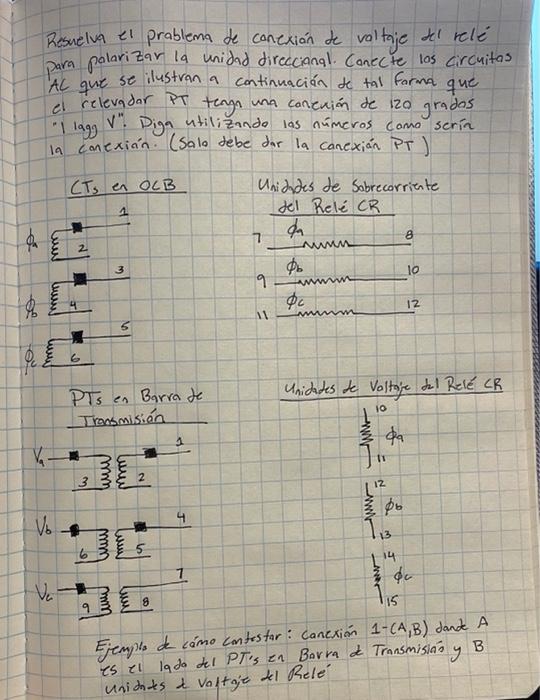 Resuelva el problema de conexión de voltaje del relé
para polarizar la unidad direccional. Conecte los circuitos
AC que se ilustran a continuación de tal forma que
el relevador PT tenga una conexión de 120 grados
"I lagg V". Diga utilizando los números como sería
la conexión. (Solo debe dar la conexión PT)
CTs en OCB
Unidades de Sobrecorriente
del Relé CR
1
ϕa
2
3
ϕb
4
5
ϕc
6
7 ϕa 8
9 ϕb 10
11 ϕc 12
PTs en Barra de
Transmisión
Unidades de Voltaje del Relé CR
Va 1
3 2
Vb 4
6 5
Vc 7
9 8
10
ϕa
11
12
ϕb
13
14
ϕc
15
Ejemplo de cómo contestar: conexión 1-(A,B) donde A
es el lado del PT's en Barra de Transmisión y B
Unidades de Voltaje del Relé